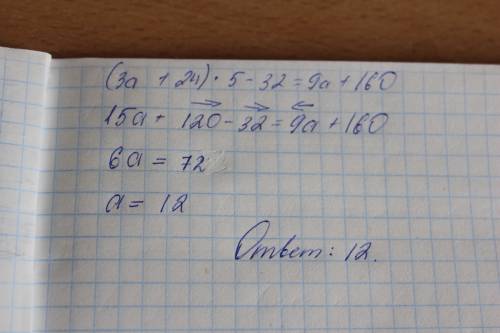 (3a + 24) · 5 - 32 = 9a + 160
15a + 120 - 32 = 9a + 160
6a = 72
a = 12
Ответ: 12.